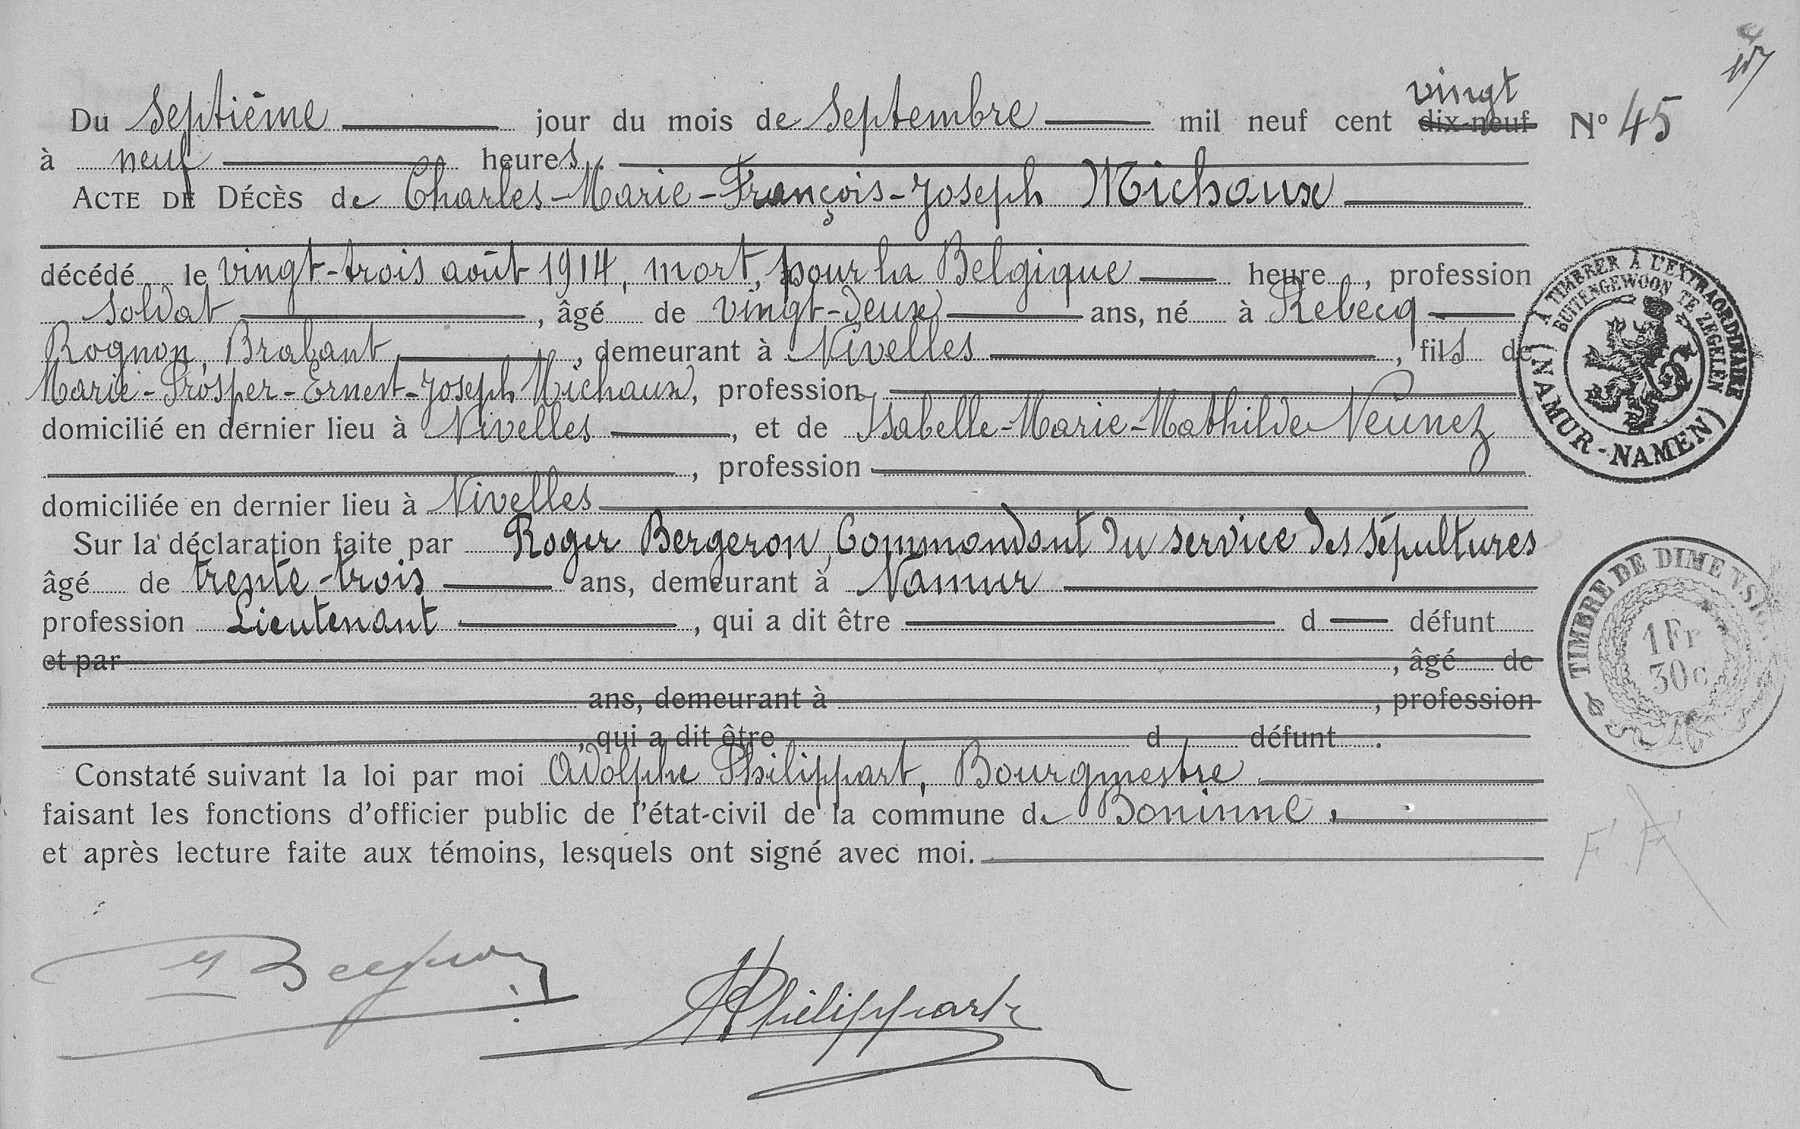 vingt
Du Septième jour du mois de Septembre mil neuf cent dix-neuf Nº 45
à neuf heures.
ACTE DE DÉCÈS de Charles-Marie-François-Joseph Michaux
décédé le vingt-trois août 1914, mort pour la Belgique heure, profession
soldat, âgé de vingt-deux ans, né à Rebecq
Rognon, Brabant, demeurant à Nivelles, fils de
Marie-Prosper-Ernest-Joseph Michaux, profession
domicilié en dernier lieu à Nivelles, et de Isabelle-Marie-Mathilde Neunez
, profession
domiciliée en dernier lieu à Nivelles
Sur la déclaration faite par Roger Bergeron, Commandant du service des sépultures
âgé de trente-trois ans, demeurant à Namur
profession Lieutenant, qui a dit être d défunt
et par, âgé de
ans, demeurant à, profession
, qui a dit être d défunt.
Constaté suivant la loi par moi Adolphe Philippart, Bourgmestre
faisant les fonctions d'officier public de l'état-civil de la commune de Boninne.
et après lecture faite aux témoins, lesquels ont signé avec moi.
À TIMBRER À L'EXTRAORDINAIRE
BUITENGEWOON TE ZEGELEN
(NAMUR-NAMEN)
TIMBRE DE DIMENSION
1 Fr
30 c
R Bergeron
A Philippart